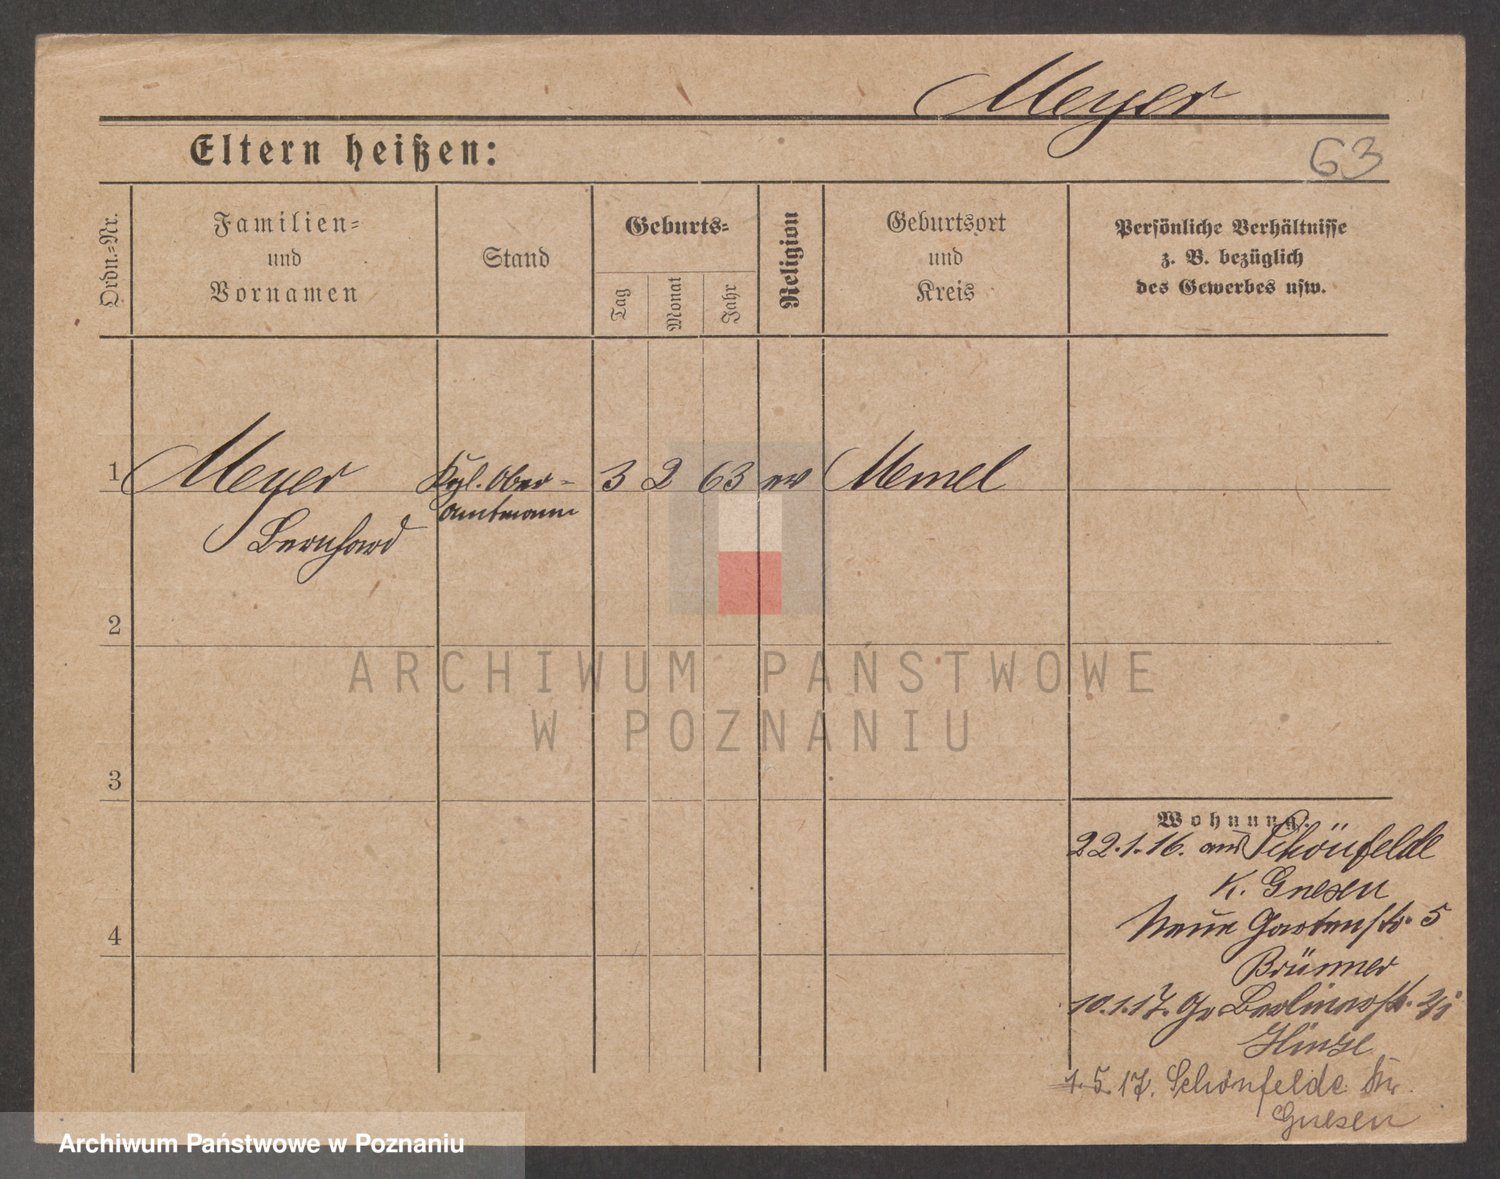 Meyer
Eltern heißen:
63
Ordn.-Nr.
Familien-
und
Vornamen
Stand
Geburts-
Tag
Monat
Jahr
Religion
Geburtsort
und
Kreis
Persönliche Verhältnisse
z. B. bezüglich
des Gewerbes usw.
1 Meyer Kgl. Ober- 3 2 63 ev Memel
amtmann
Bernhard
2
ARCHIWUM PAŃSTWOWE
W POZNANIU
3
Wohnung.
22.1.16. aus Schönfelde
K. Gnesen
Neue Gartenstr. 5
4
Brünner
10.1.17. Gr Berlinerstr.
Hintze
1.5.17. Schönfelde Kr.
Gnesen
Archiwum Państwowe w Poznaniu